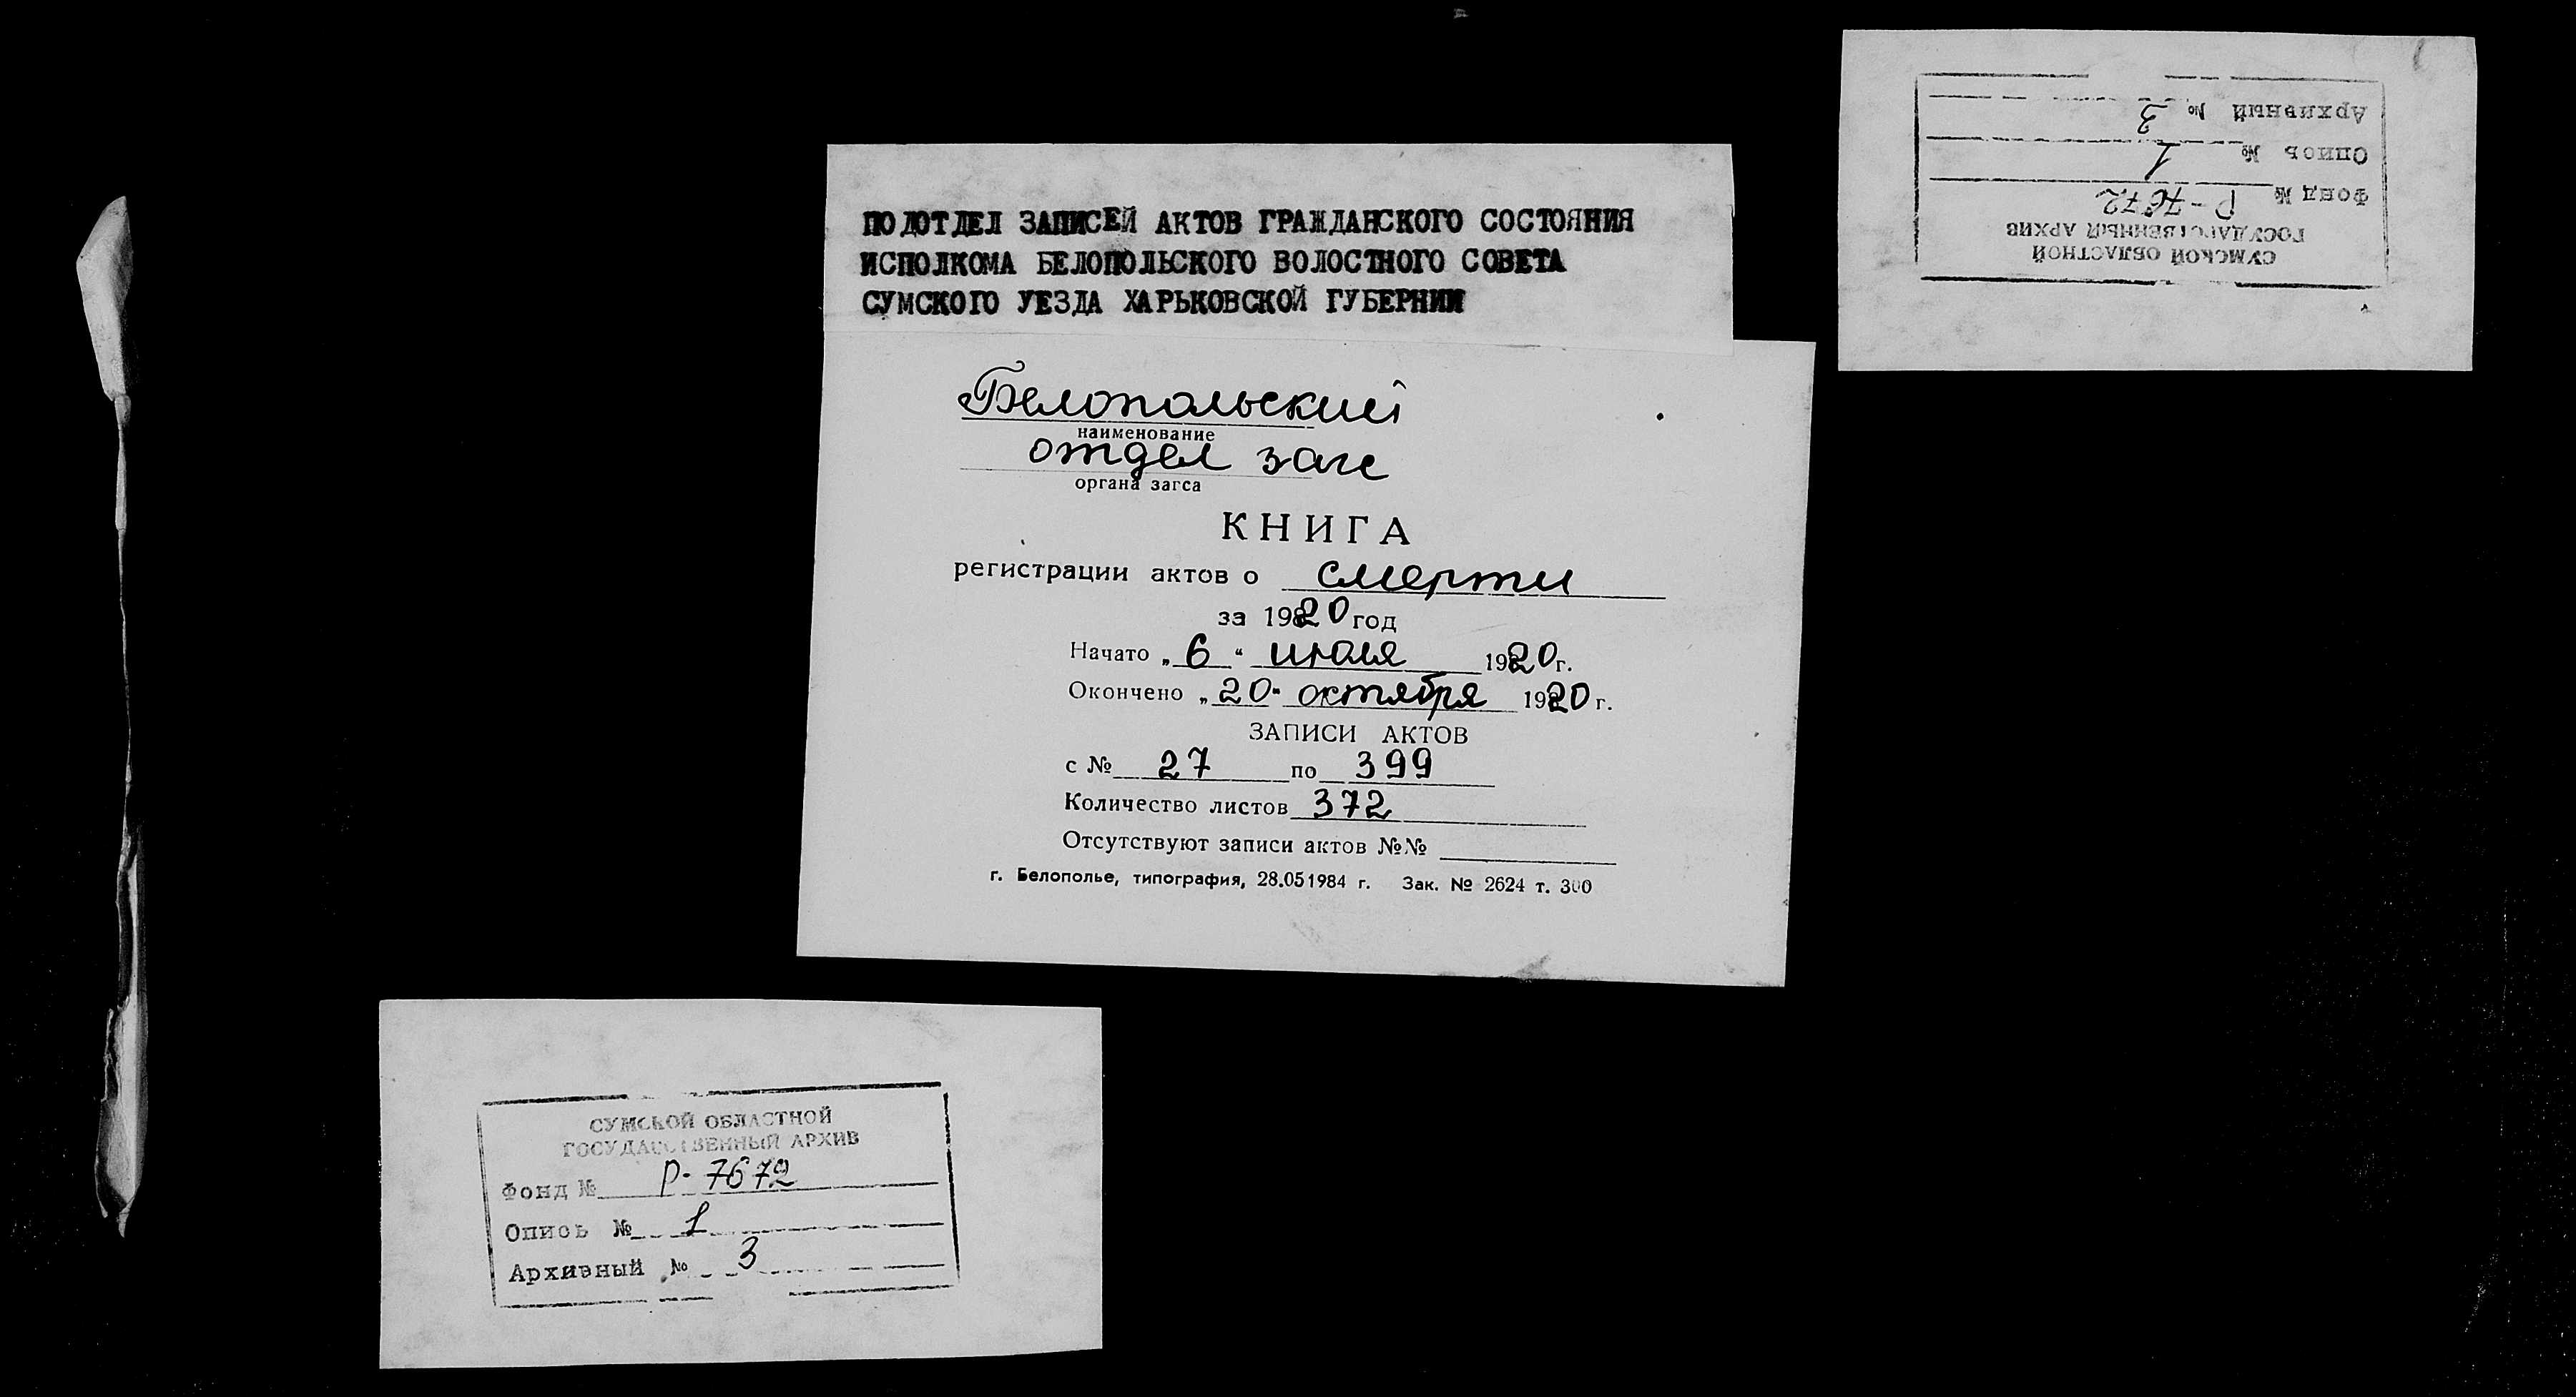 ПОДОТДЕЛ ЗАПИСЕЙ АКТОВ ГРАЖДАНСКОГО СОСТОЯНИЯ
ИСПОЛКОМА БЕЛОПОЛЬСКОГО ВОЛОСТНОГО СОВЕТА
СУМСКОГО УЕЗДА ХАРЬКОВСКОЙ ГУБЕРНИИ
Белопольский
наименование
отдел загс
органа загса
КНИГА
регистрации актов о смерти
за 1920 год
Начато „6“ июля 1920 г.
Окончено „20“ октября 1920 г.
ЗАПИСИ АКТОВ
с № 27 по 399
Количество листов 372
Отсутствуют записи актов №№
г. Белополье, типография, 28.051984 г. Зак. № 2624 т. 300
СУМСКОЙ ОБЛАСТНОЙ
ГОСУДАРСТВЕННЫЙ АРХИВ
Фонд № Р-7672
Опись № 1
Архивный № 3
СУМСКОЙ ОБЛАСТНОЙ
ГОСУДАРСТВЕННЫЙ АРХИВ
Фонд № Р-7672
Опись № 1
Архивный № 3